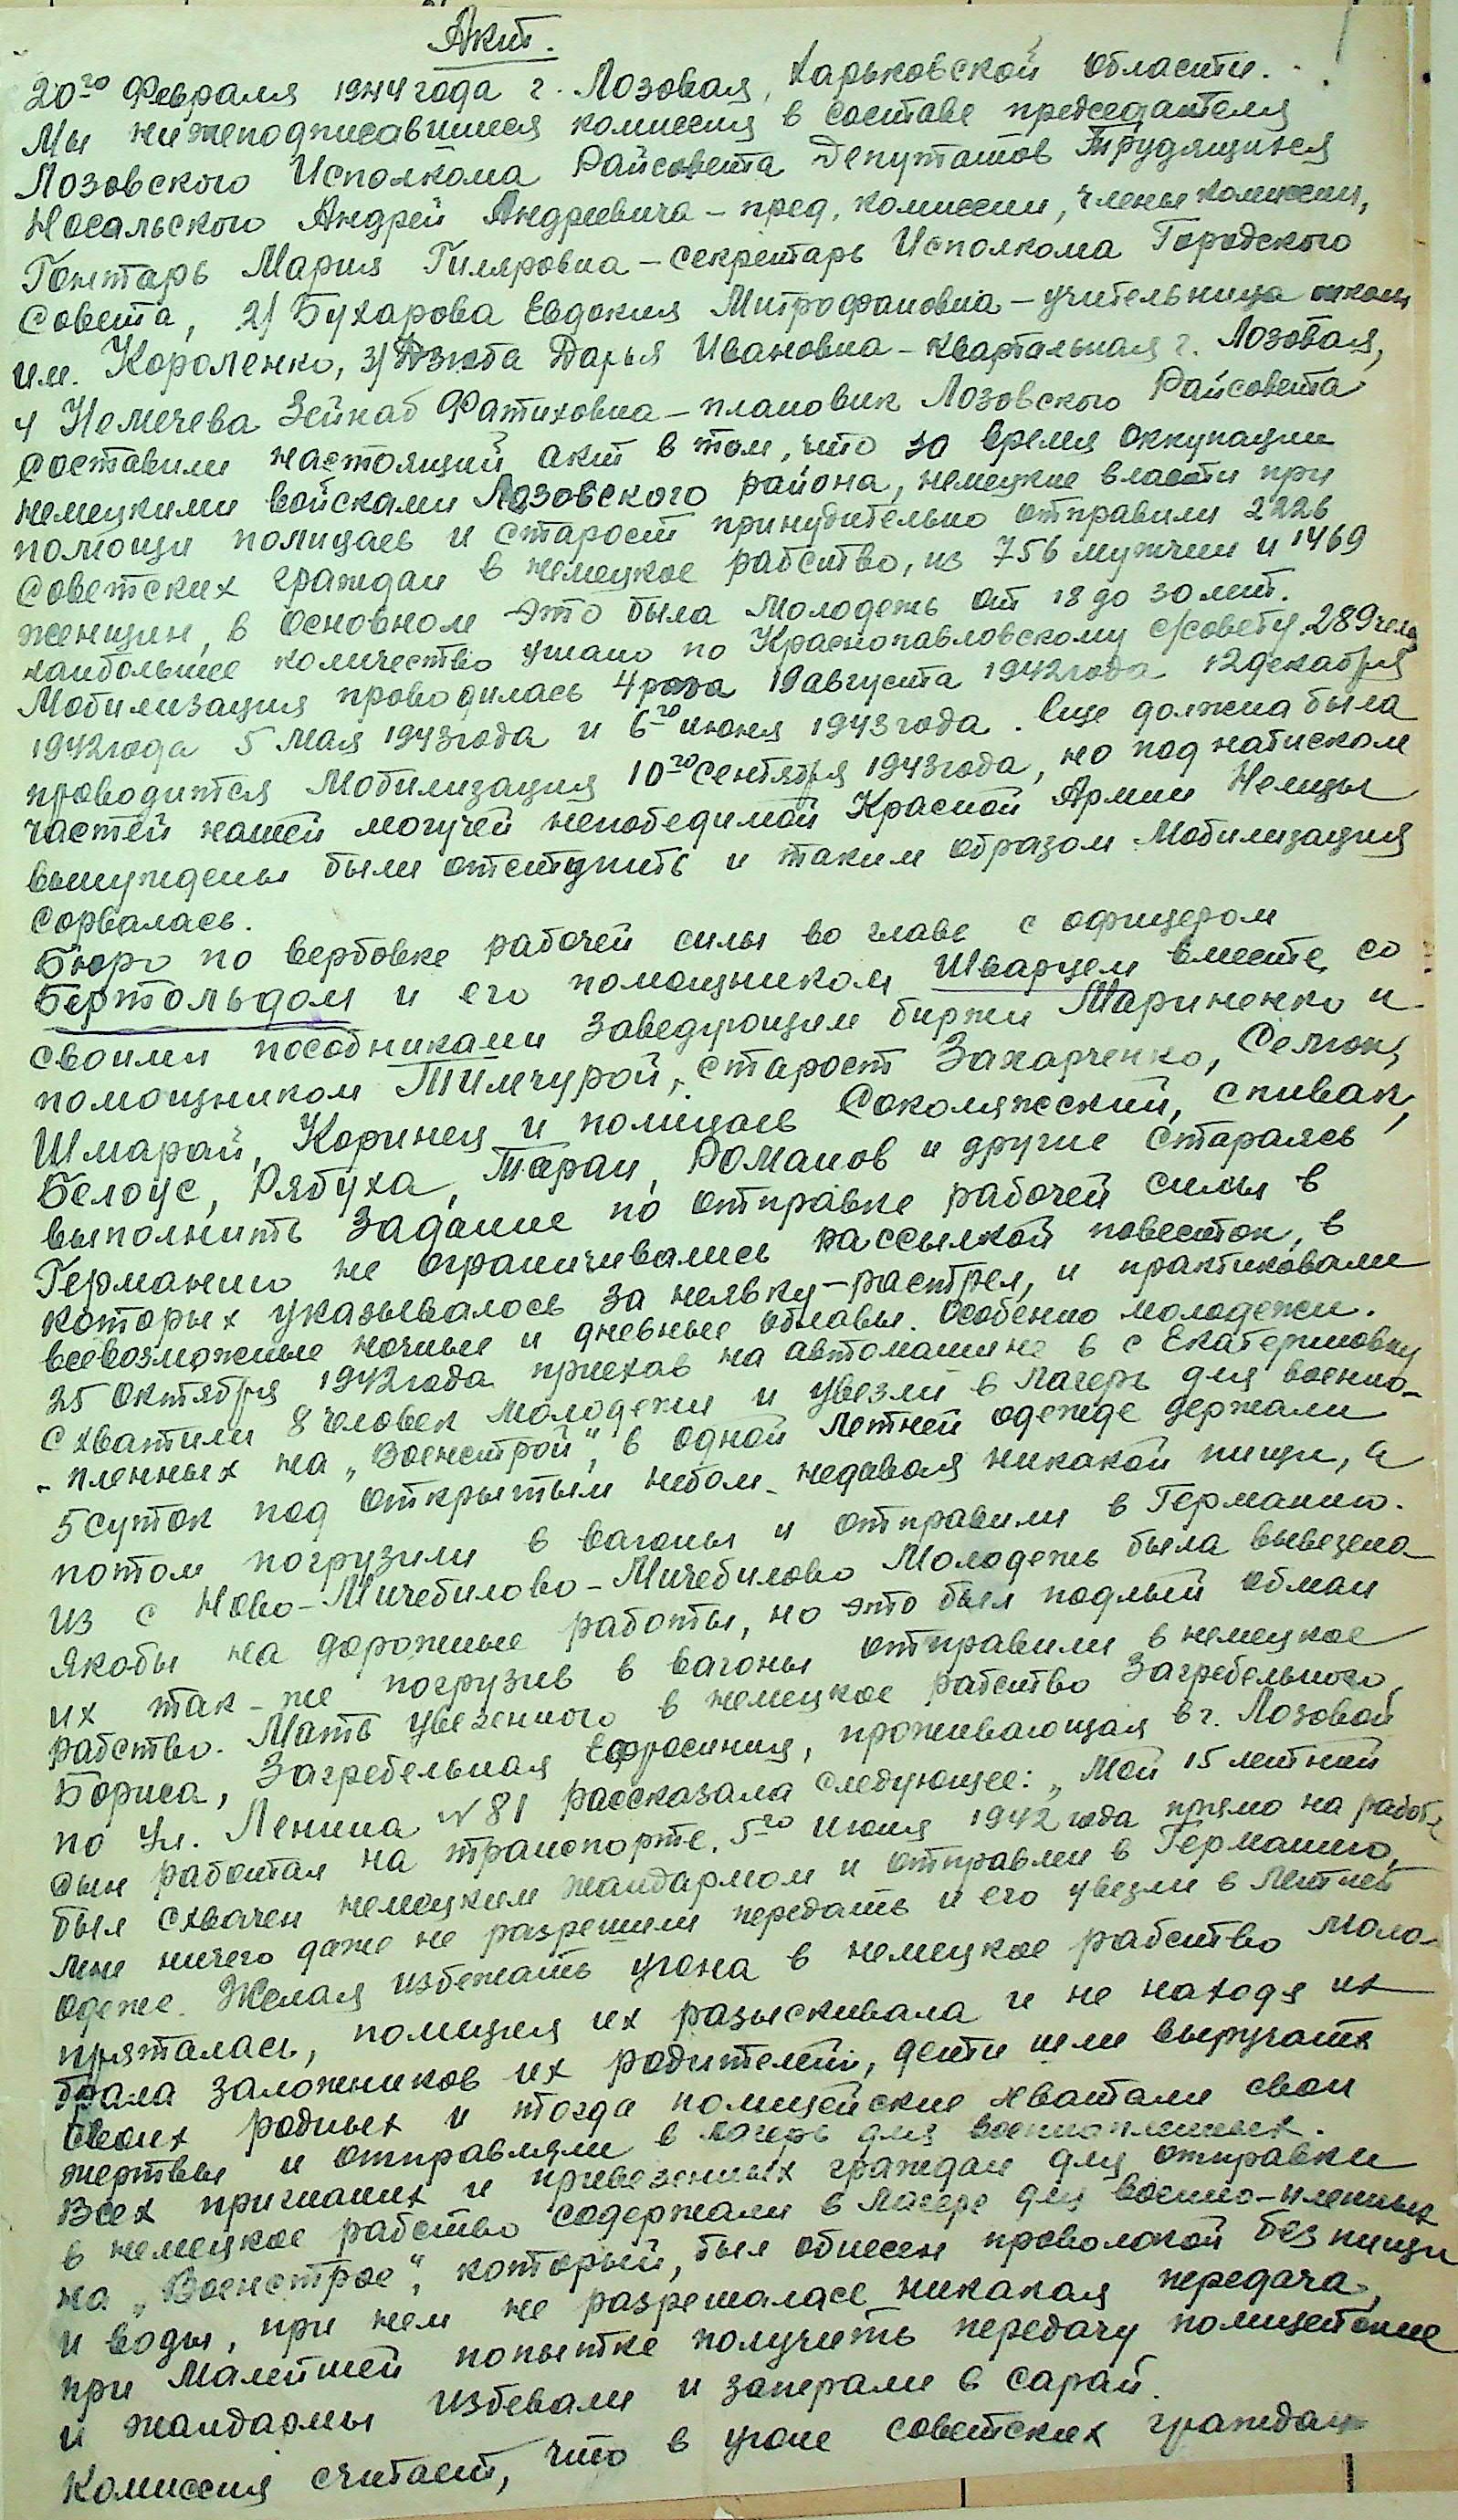 Акт.
20го Февраля 1944 года г. Лозовая, Харьковской области.
Мы нижеподписавшиеся комиссия в составе председателя
Лозовского Исполкома Райсовета Депутатов Трудящихся
Носальского Андрей Андреевича – пред. комиссии, члены комиссии,
Гонтарь Мария Гиляровна – секретарь Исполкома Городского
Совета, 2/ Бухарова Евдокия Митрофановна – учительница школы
им. Короленко, 3/ Дзюба Дарья Ивановна – квартальная г. Лозовая,
4 Немечева Зейнаб Фатиховна – плановик Лозовского Райсовета
составили настоящий акт в том, что за время оккупации
немецкими войсками Лозовского района, немецкие власти при
помощи полицаев и старост принудительно отправили 2226
советских граждан в немецкое рабство, из 756 мужчин и 1469
женщин, в основном это была молодежь от 18 до 30 лет.
наибольшее количество угнано по Краснопавловскому с/совету 289 чел
Мобилизация проводилась 4 раза 19 августа 1942 года 12 декабря
1942 года 5 мая 1943 года и 6го июня 1943 года. Еще должна была
проводится Мобилизация 10го Сентября 1943 года, но под натиском
частей нашей могучей непобедимой Красной Армии Немцы
вынуждены были отступить и таким образом Мобилизация
сорвалась.
Бюро по вербовке рабочей силы во главе с офицером
Бертольдом и его помощником Шварцем вместе со
своими пособниками заведующим биржи Мариненко и
помощником Тимчурой, старост Захарченко, Семон,
Шмарай, Коринец и полицаев Соколяжский, Спивак,
Белоус, Рябуха, Таран, Романов и другие стараясь
выполнить задание по отправке рабочей силы в
Германию не ограничивались рассылкой повесток, в
которых указывалось за неявку – растрел, и практиковали
всевозможные ночные и дневные облавы. Особенно молодежи.
25 Октября 1942 года приехав на автомашине в с Екатериновку
схватили 8 человек молодежи и увезли в лагерь для военно-
-пленных на „Военстрой“, в одной летней одежде держали
5 суток под открытым небом недавая никакой пищи, а
потом погрузили в вагоны и отправили в Германию.
из с Ново-Мичебилово – Мичебилово Молодежь была вывезена
якобы на дорожные работы, но это был подлый обман
их так-же погрузив в вагоны отправили в немецкое
рабство. Мать увезенного в немецкое рабство Загребельного
Бориса, Загребельная Ефросиния, проживающая в г. Лозовой
по ул. Ленина № 81 рассказала следующее: „Мой 15 летний
сын работал на транспорте. 5го июня 1942 года прямо на работе
был схвачен немецким жандармом и отправлен в Германию,
мне ничего даже не разрешили передать и его увезли в летней
одеже. Желая избежать угона в немецкое рабство моло-
пряталась, полиция их разыскивала и не находя их
брала заложников их родителей, дети шли выручать
своих родных и тогда полицейские хватали свои
жертвы и отправляли в лагерь для военнопленных.
Всех пригнаных и привезенных граждан для отправки
в немецкое рабство содержали в лагере для военно-пленных
на „Военстрое“, который, был обнесен проволокой без пищи
и воды, при нем не разрешалась никакая передача,
при малейшей попытке получить передачу полицейские
и жандармы избевали и заперали в сарай.
Комиссия считает, что в угоне советских граждан